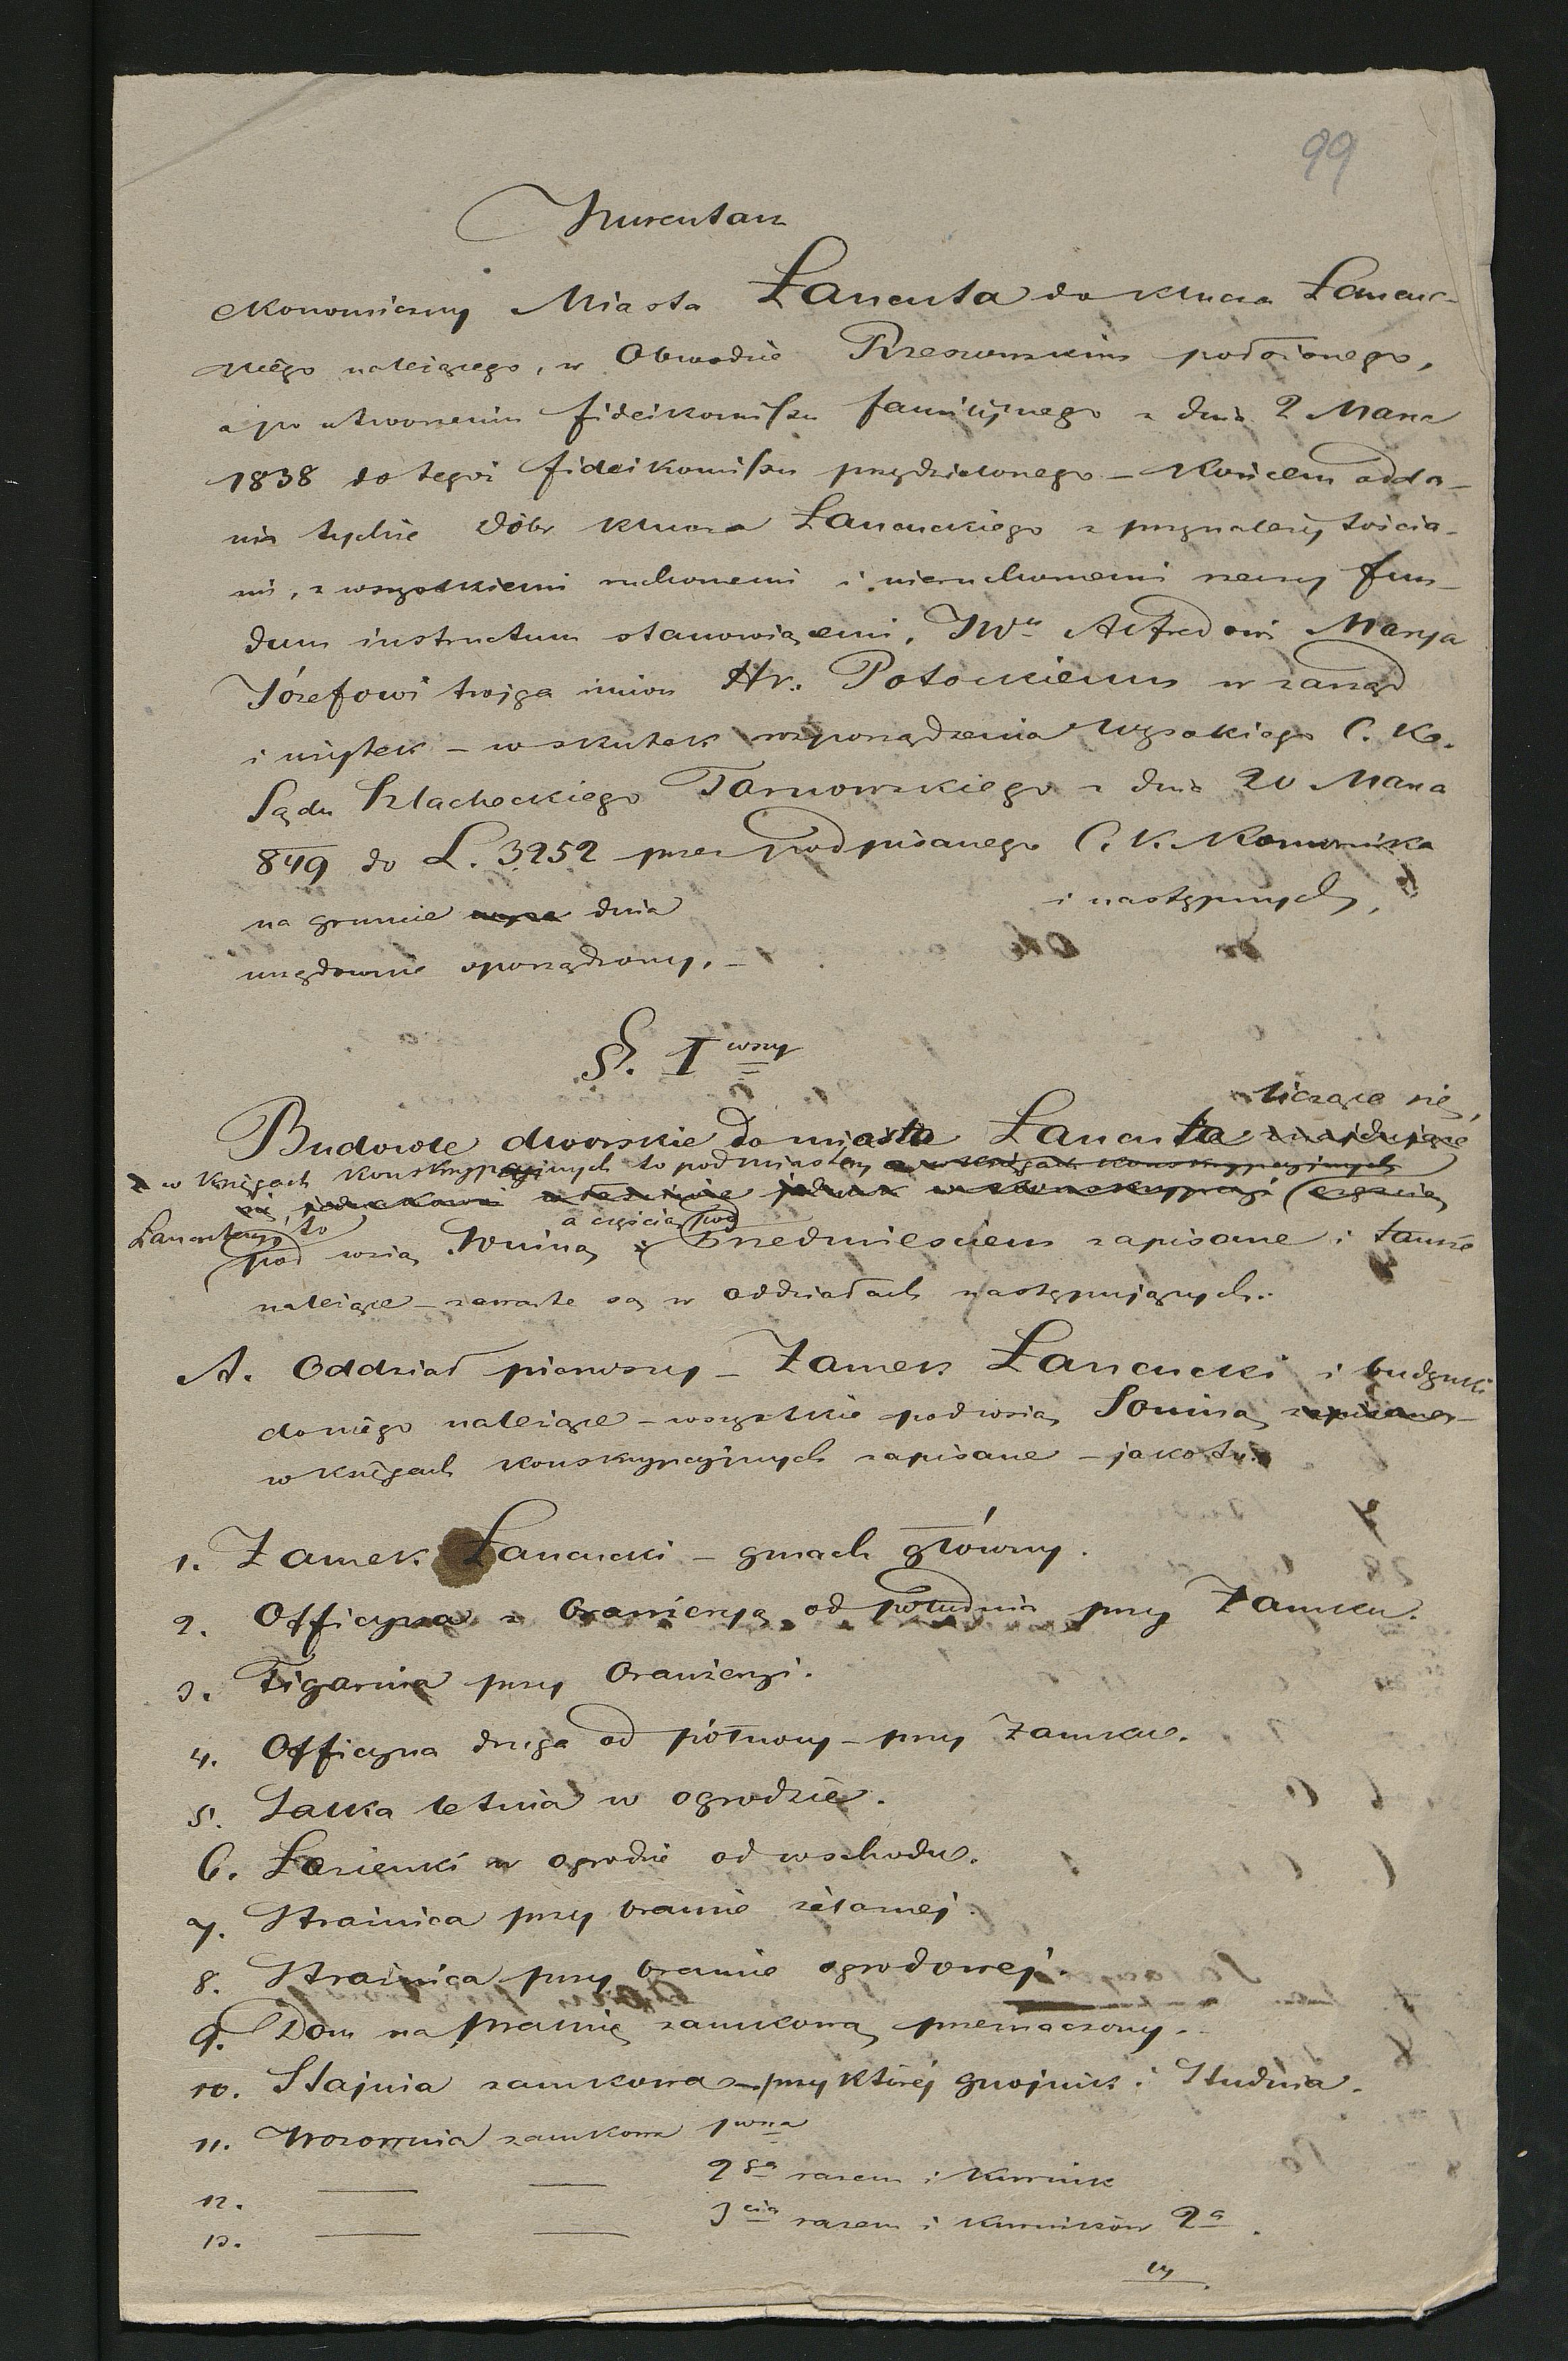 99
Inwentarz
ekonomiczny Miasta Łańcuta do klucza Łańcuc-
kiego należącego, w Obwodzie Rzeszowskim położonego,
a po utworzeniu fideikomissu familijnego z dnia 2 Marca
1838 do tegoż fideikomissu przydzielonego – końcem odda-
nia tychże dóbr klucza Łańcuckiego z przynależytościa-
mi, z wszystkiemi ruchomemi i nieruchomemi rzeczy fun-
dum instructum stanowiącemi, JWu Alfredowi Marya
Józefowi dwojga imion Hr. Potockiemu w zarząd
i użytek – w skutek rozporządzenia Wysokiego C. K.
Sądu Szlacheckiego Tarnowskiego z dnia 20 Marca
849 do L. 3252 przez podpisanego C. K. Komornika
na gruncie dnia i następnych,
urzędownie sporządzony. –
§. I wszy
liczące się,
Budowle dworskie do miasta Łańcuta znajdujące
w księgach konskrypcyjnych to pod miastem a w księgach konskrypcyjnych
się jednakowo jednak w konskrypcyi częścią
Łańcutem, to a częścią pod
pod wsią Sonina Przedmieściem zapisane i tamże
należące – zawarte są w oddziałach następujących.
A. Oddział pierwszy – Zamek Łańcucki i budynki
do niego należące – wszystkie pod wsią Sonina zapisane
w księgach konskrypcyjnych zapisane – jako to:
1. Zamek Łańcucki – gmach główny.
2. Officyna z Oranżeryą od południa przy Zamku.
3. Figarnia przy Oranżeryi.
4. Officyna druga od północy – przy Zamku.
5. Salka letnia w ogrodzie.
6. Łazienki w ogrodzie od wschodu.
7. Strażnica przy bramie żelaznej.
8. Strażnica przy bramie ogrodowej.
9. Dom na pralnię zamkową przeznaczony.
10. Stajnia zamkowa – przy której gnojnik i Studnia.
11. Wozownia zamkowa 1wsza
12. — — 2ga razem i Kurnik
13. — — 3cia razem i Kurników 2a.